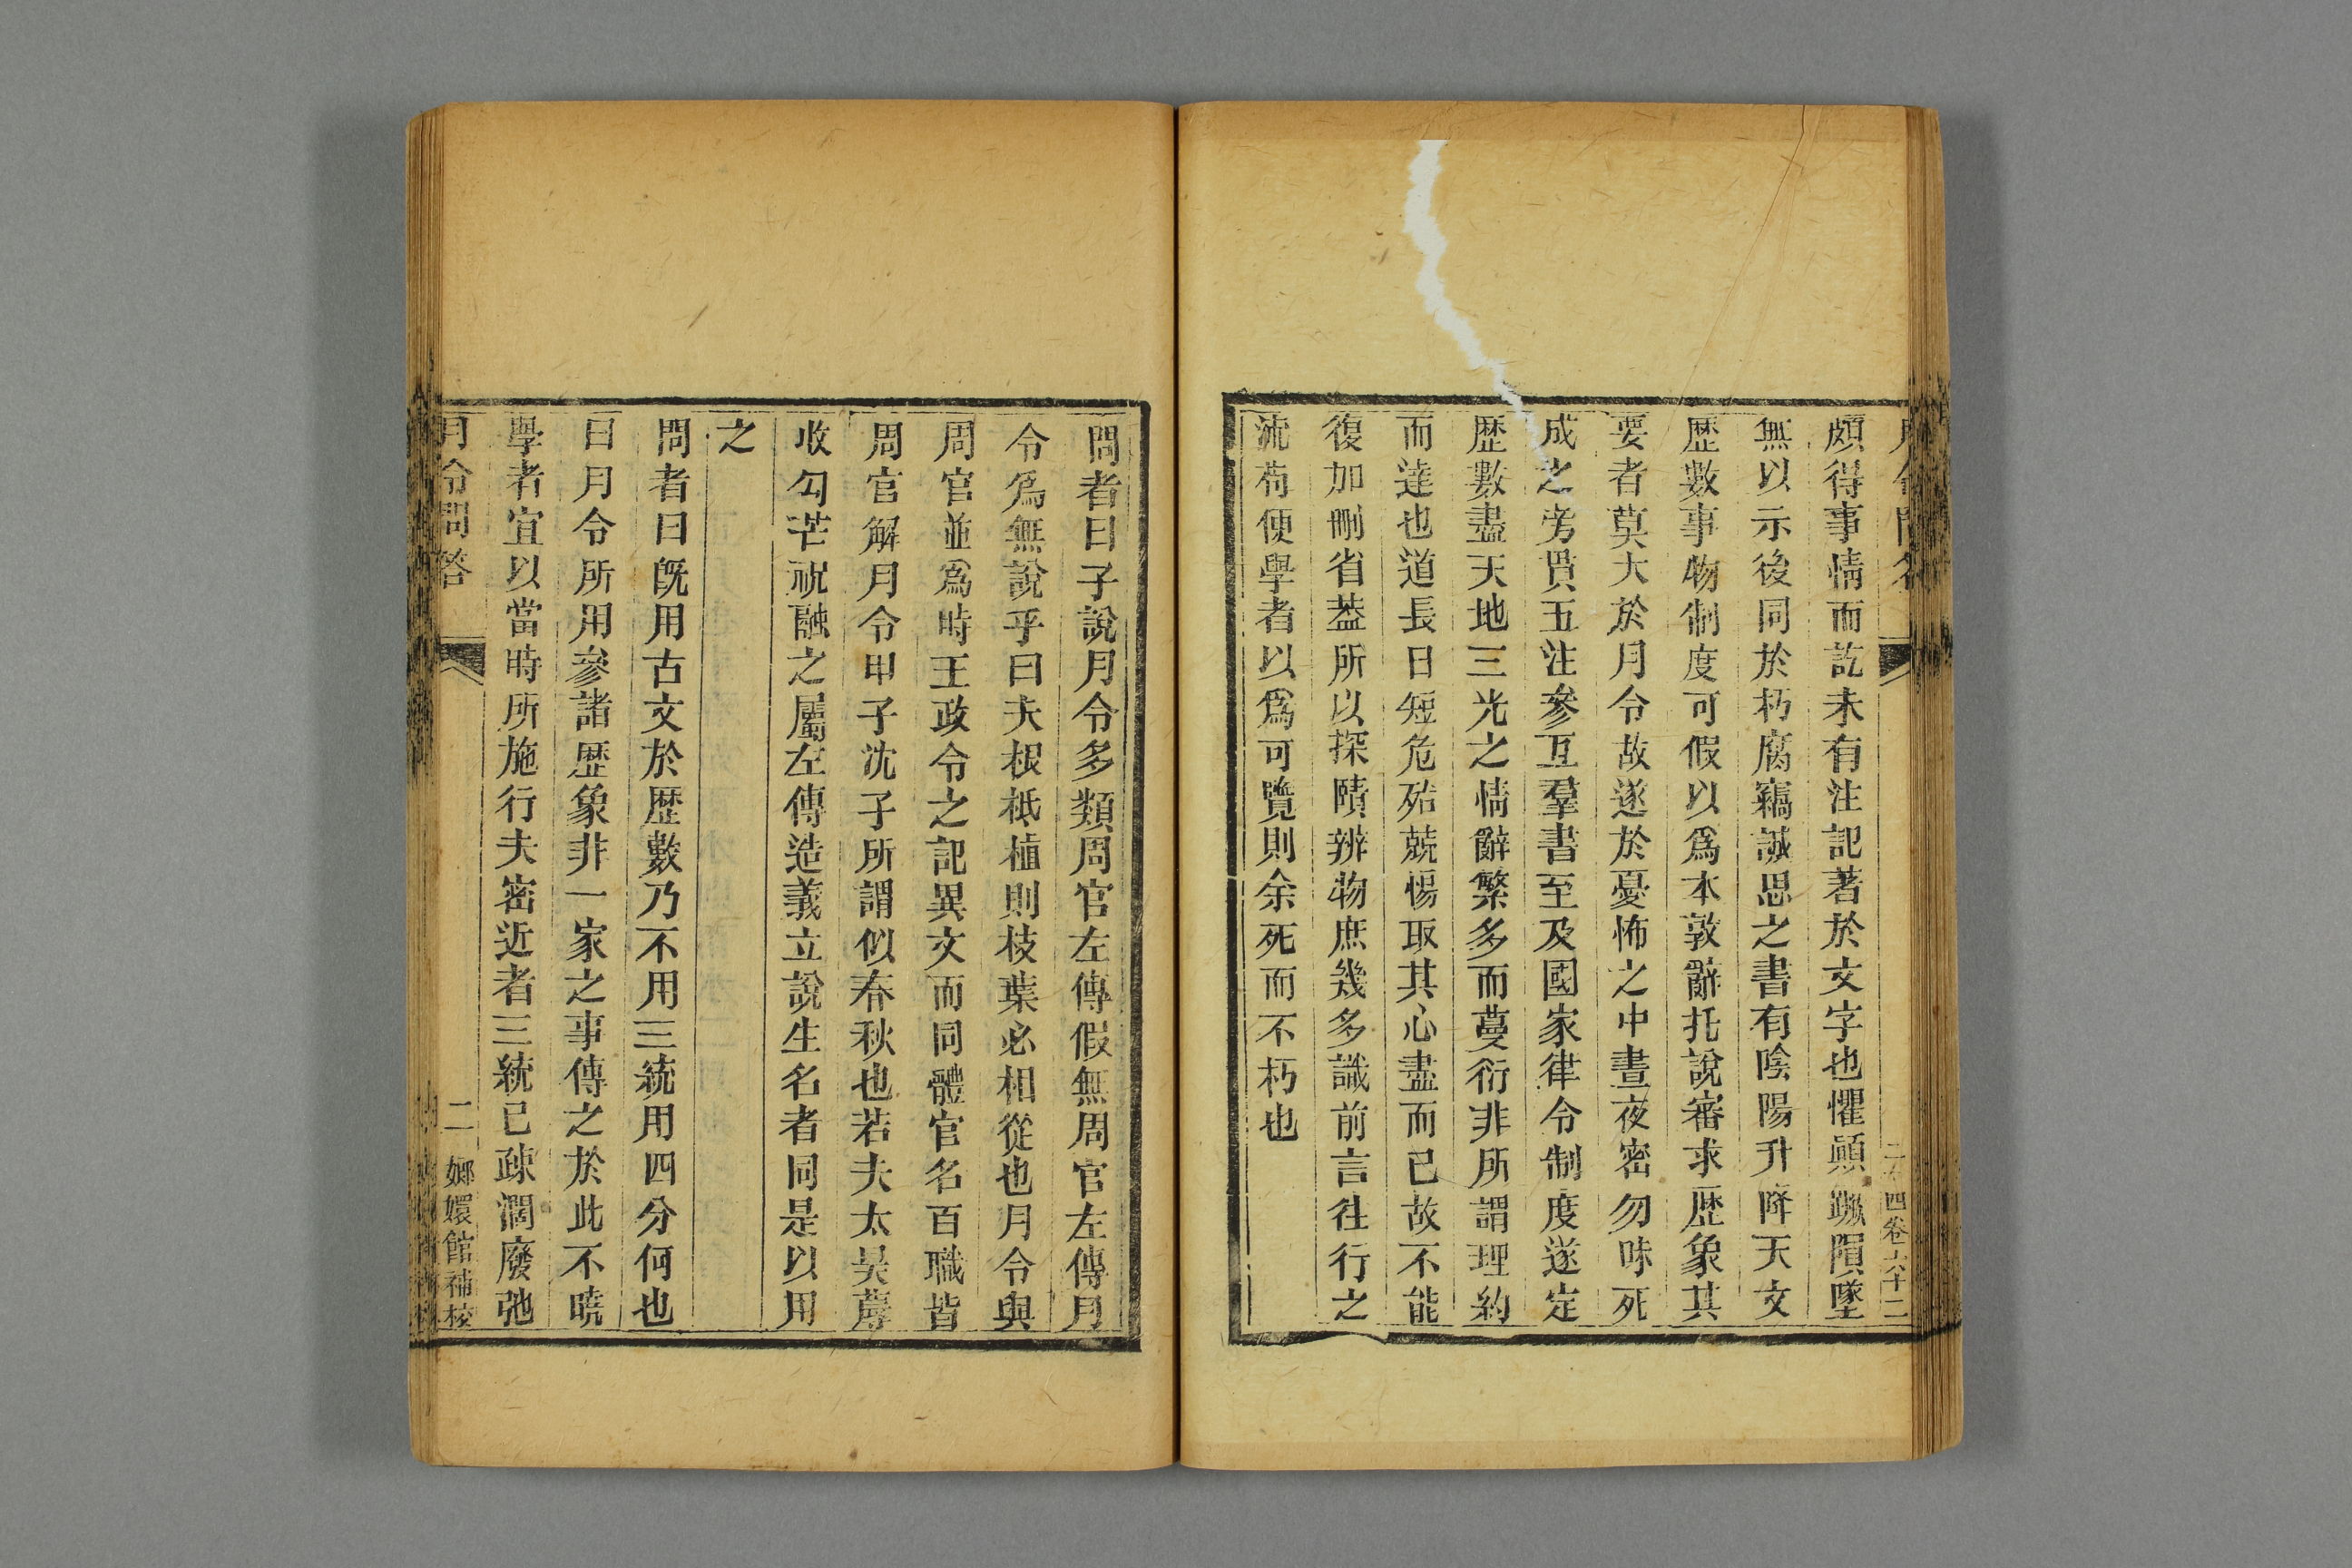 月令問答
二百四卷六十二
頗得事情而訖未有注記著於文字也懼顚蹶隕墜
無以示後同於朽腐竊誠思之書有陰陽升降天文
歴數事物制度可假以爲本敦辭托說審求歴象其
要者莫大於月令故遂於憂怖之中晝夜密勿昧死
成之旁貫五注參互羣書至及國家律令制度遂定
歴數盡天地三光之情辭繁多而蔓衍非所謂理約
而達也道長日短危殆兢惕取其心盡而已故不能
復加刪省葢所以探賾辨物庶幾多識前言往行之
流苟便學者以爲可覽則余死而不朽也
問者曰子說月令多類周官左傳假無周官左傳月
令爲無說乎曰夫根柢植則枝葉必相從也月令與
周官並爲時王政令之記異文而同體官名百職皆
周官解月令甲子沈子所謂似春秋也若夫太昊蓐
收勾芒祝融之屬左傳造義立說生名者同是以用
之
問者曰旣用古文於歴數乃不用三統用四分何也
曰月令所用參諸歴象非一家之事傳之於此不曉
學者宜以當時所施行夫密近者三統已疎濶廢弛
月令問答
二
嫏嬛館補校